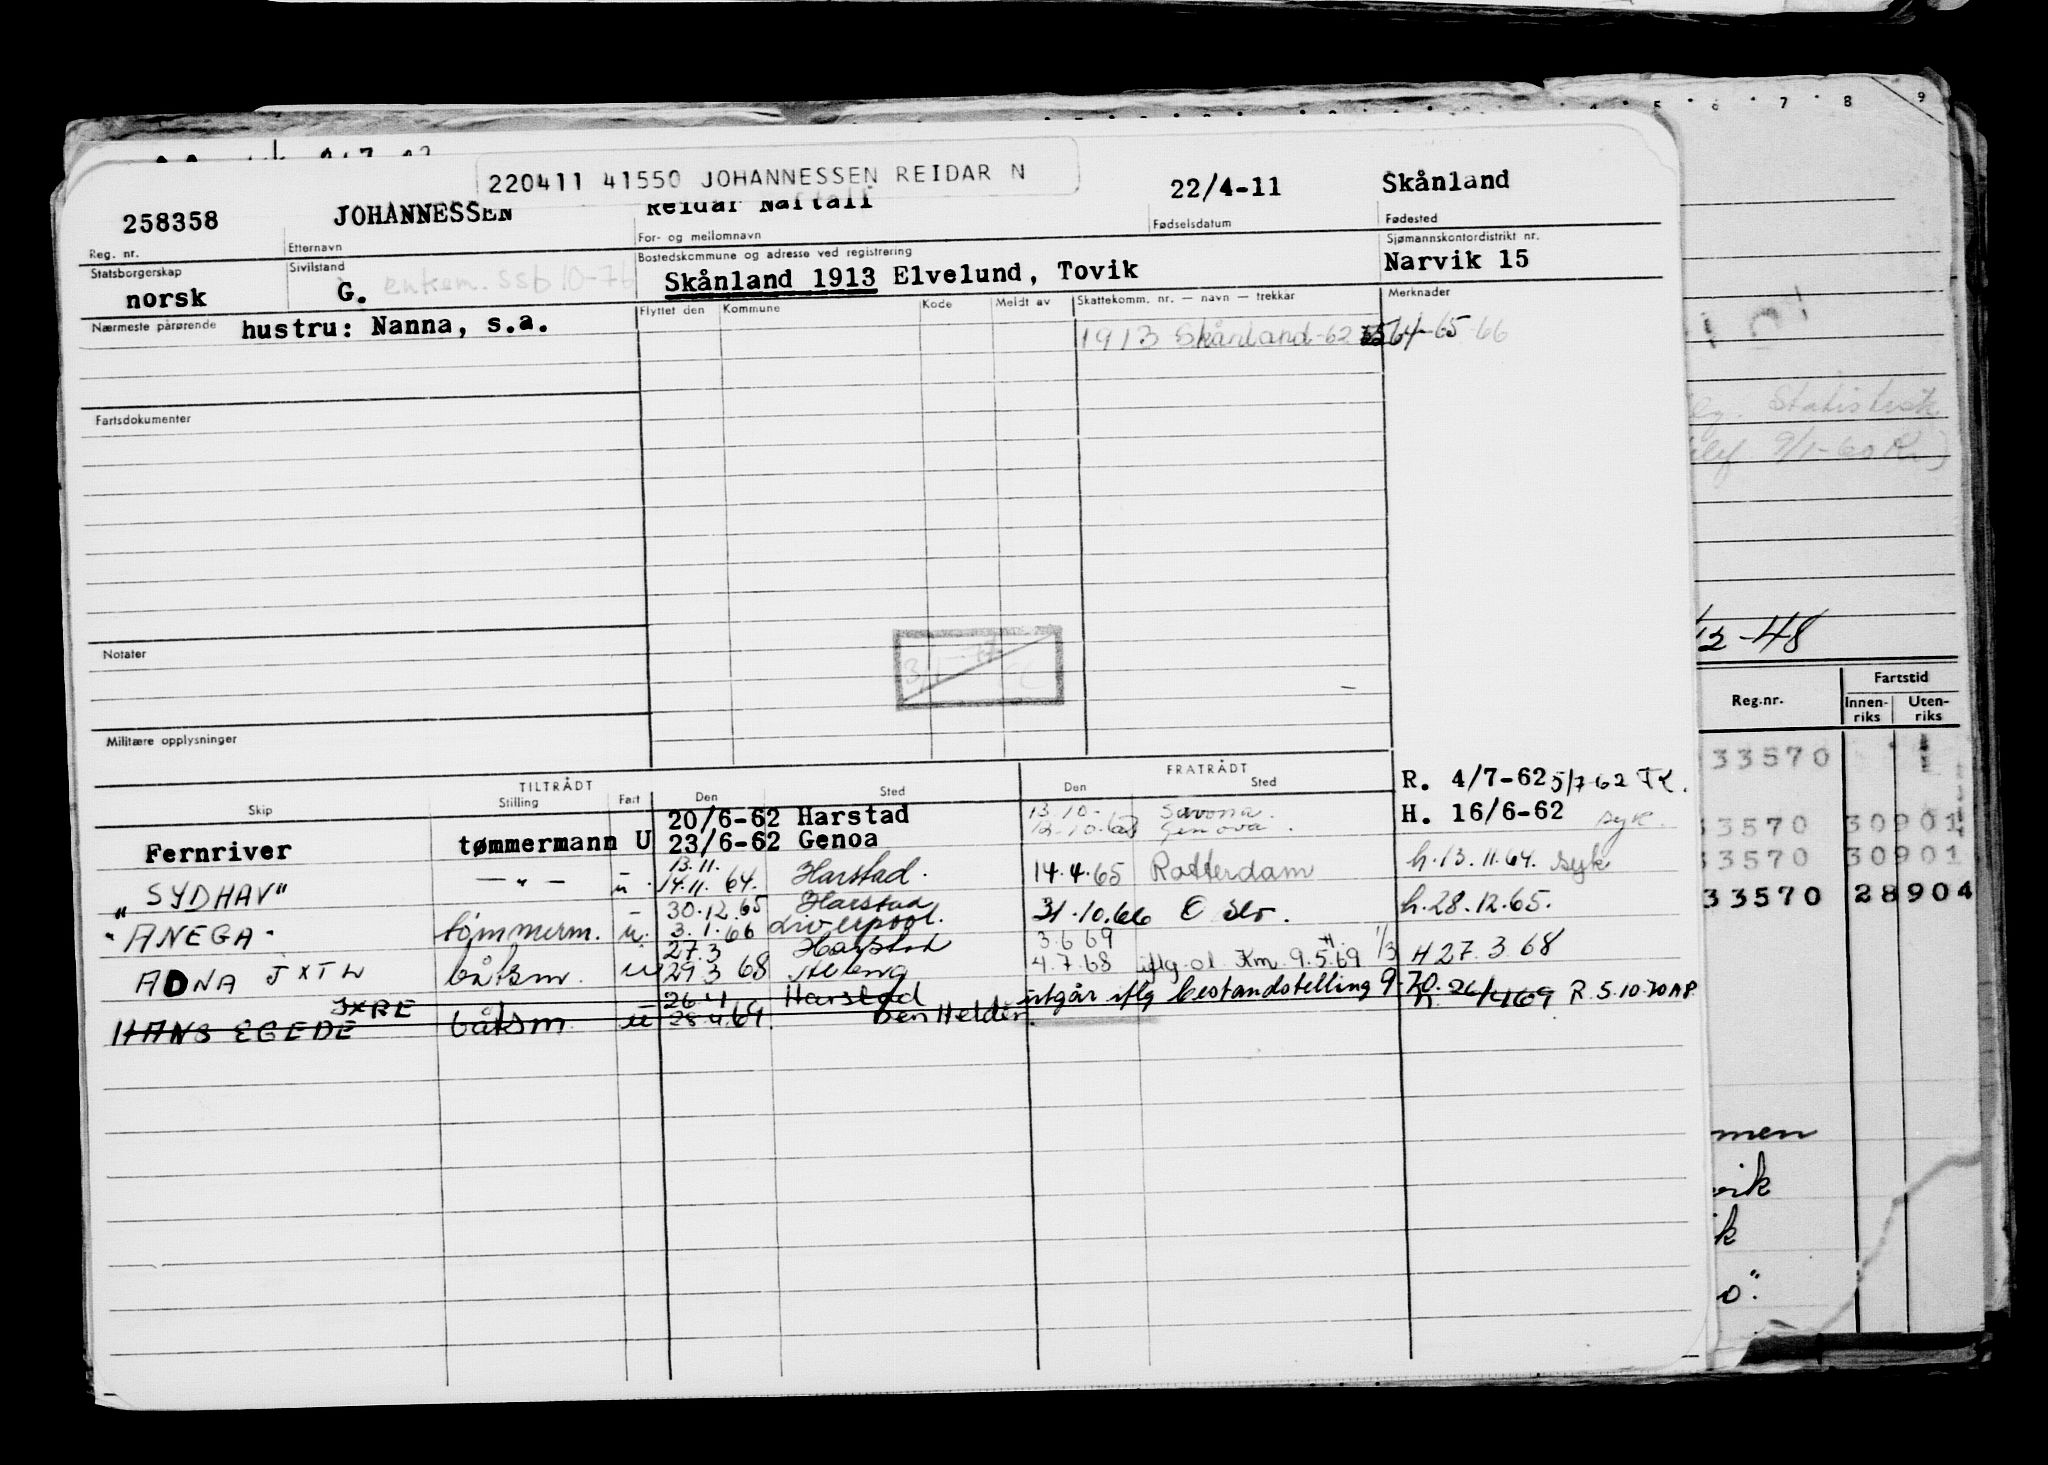 5 6 7 8 9
220411 41550 JOHANNESSEN REIDAR N
258358 JOHANNESSEN Reidar Naftali 22/4-11 Skånland
Reg. nr. Etternavn For- og mellomnavn Fødselsdatum Fødested
Statsborgerskap Sivilstand Bostedskommune og adresse ved registrering Sjømannskontordistrikt nr.
norsk G. enkem. SSB 10-76 Skånland 1913 Elvelund, Tovik Narvik 15
Nærmeste pårørende Flyttet den Kommune Kode Meldt av Skattekomm. nr. — navn — trekkar Merknader
hustru: Nanna, s.a.
1913 Skånland-62 64-65-66
Fartsdokumenter
Statistisk
9/1-60
Notater
12-48
Militære opplysninger
Reg.nr. Fartstid
Innenriks Utenriks
TILTRÅDT FRATRÅDT
Skip Stilling Fart Den Sted Den Sted
R. 4/7-62 5/7-62
33570
20/6-62 Harstad 13.10- Savona. H. 16/6-62 syk.
Fernriver tømmermann U 23/6-62 Genoa Genova.
33570 30901
13.11.
„SYDHAV" — „ — u. 14.11. 64. Harstad. 14.4.65 Rotterdam h.13.11.64. syk
33570 30901
30.12.65 Harstad
"ANEGA" tømmerm. u. 3.1.66 Liverpool. 31.10.66 Oslo. h.28.12.65.
33570 28904
27.3 Harstad 3.6 69
ADNA JXTW båtsm. u 29 3 68 4.7.68 iflg. ol. Km. 9.5.69 H 27.3 68
JXRE 26 4 Harstad utgår iflg bestandstelling 9-70. h. 26/4 69 R.5.10.70 AP.
HANS EGEDE båtsm u 28.4.69. Den Helder.